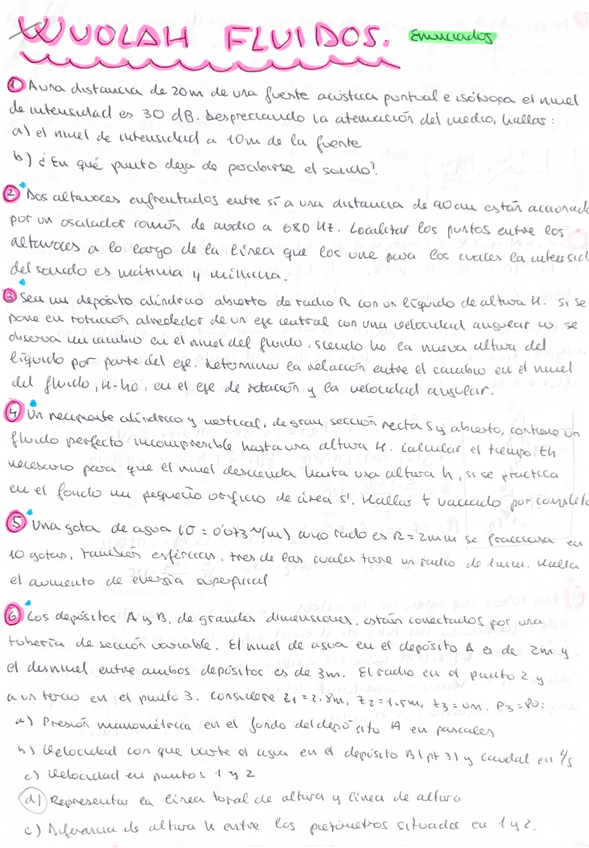 WUOLAH FLUIDOS. Enunciados
① A una distancia de 20m de una fuente acústica puntual e isótropa el nivel
de intensidad es 30 dB. Despreciando la atenuación del medio, hallar:
a) el nivel de intensidad a 10m de la fuente
b) ¿En qué punto deja de percibirse el sonido?
② Dos altavoces enfrentados entre sí a una distancia de 90cm están accionado
por un oscilador común de audio a 680 Hz. Localizar los puntos entre los
altavoces a lo largo de la línea que los une para los cuales la intensid
del sonido es máxima y mínima.
③ Sea un depósito cilíndrico abierto de radio R con un líquido de altura H. Si se
pone en rotación alrededor de un eje central con una velocidad angular ω se
observa un cambio en el nivel del fluido. Siendo ho la nueva altura del
líquido por parte del eje. Determinar la relación entre el cambio en el nivel
del fluido, H-ho, en el eje de rotación y la velocidad angular.
④ Un recipiente cilíndrico y vertical, de gran sección recta S y abierto, contiene un
fluido perfecto incompresible hasta una altura H. Calcular el tiempo th
necesario para que el nivel descienda hasta una altura h, si se practica
en el fondo un pequeño orificio de área s'. Hallar t vaciado por completo
⑤ Una gota de agua (σ = 0'073 N/m) cuyo radio es R = 2mm se fracciona en
10 gotas, también esféricas, tres de las cuales tiene un radio de 1mm. Halla
el aumento de energía superficial
⑥ Los depósitos A y B, de grandes dimensiones, están conectados por una
tubería de sección variable. El nivel de agua en el depósito A es de 2m y
el desnivel entre ambos depósitos es de 3m. El radio en el punto 2 y
a un tercio en el punto 3. Considere z1 = 2,8m, z2 = 1,5m, z3 = 0m. P3 = P0:
a) Presión manométrica en el fondo del depósito A en pascales
b) Velocidad con que vierte el agua en el depósito B (pt 3) y caudal en l/s
c) Velocidad en puntos 1 y 2
d) Representar la línea total de altura y línea de altura
e) Diferencia de altura h entre los piezómetros situados en 1 y 2.